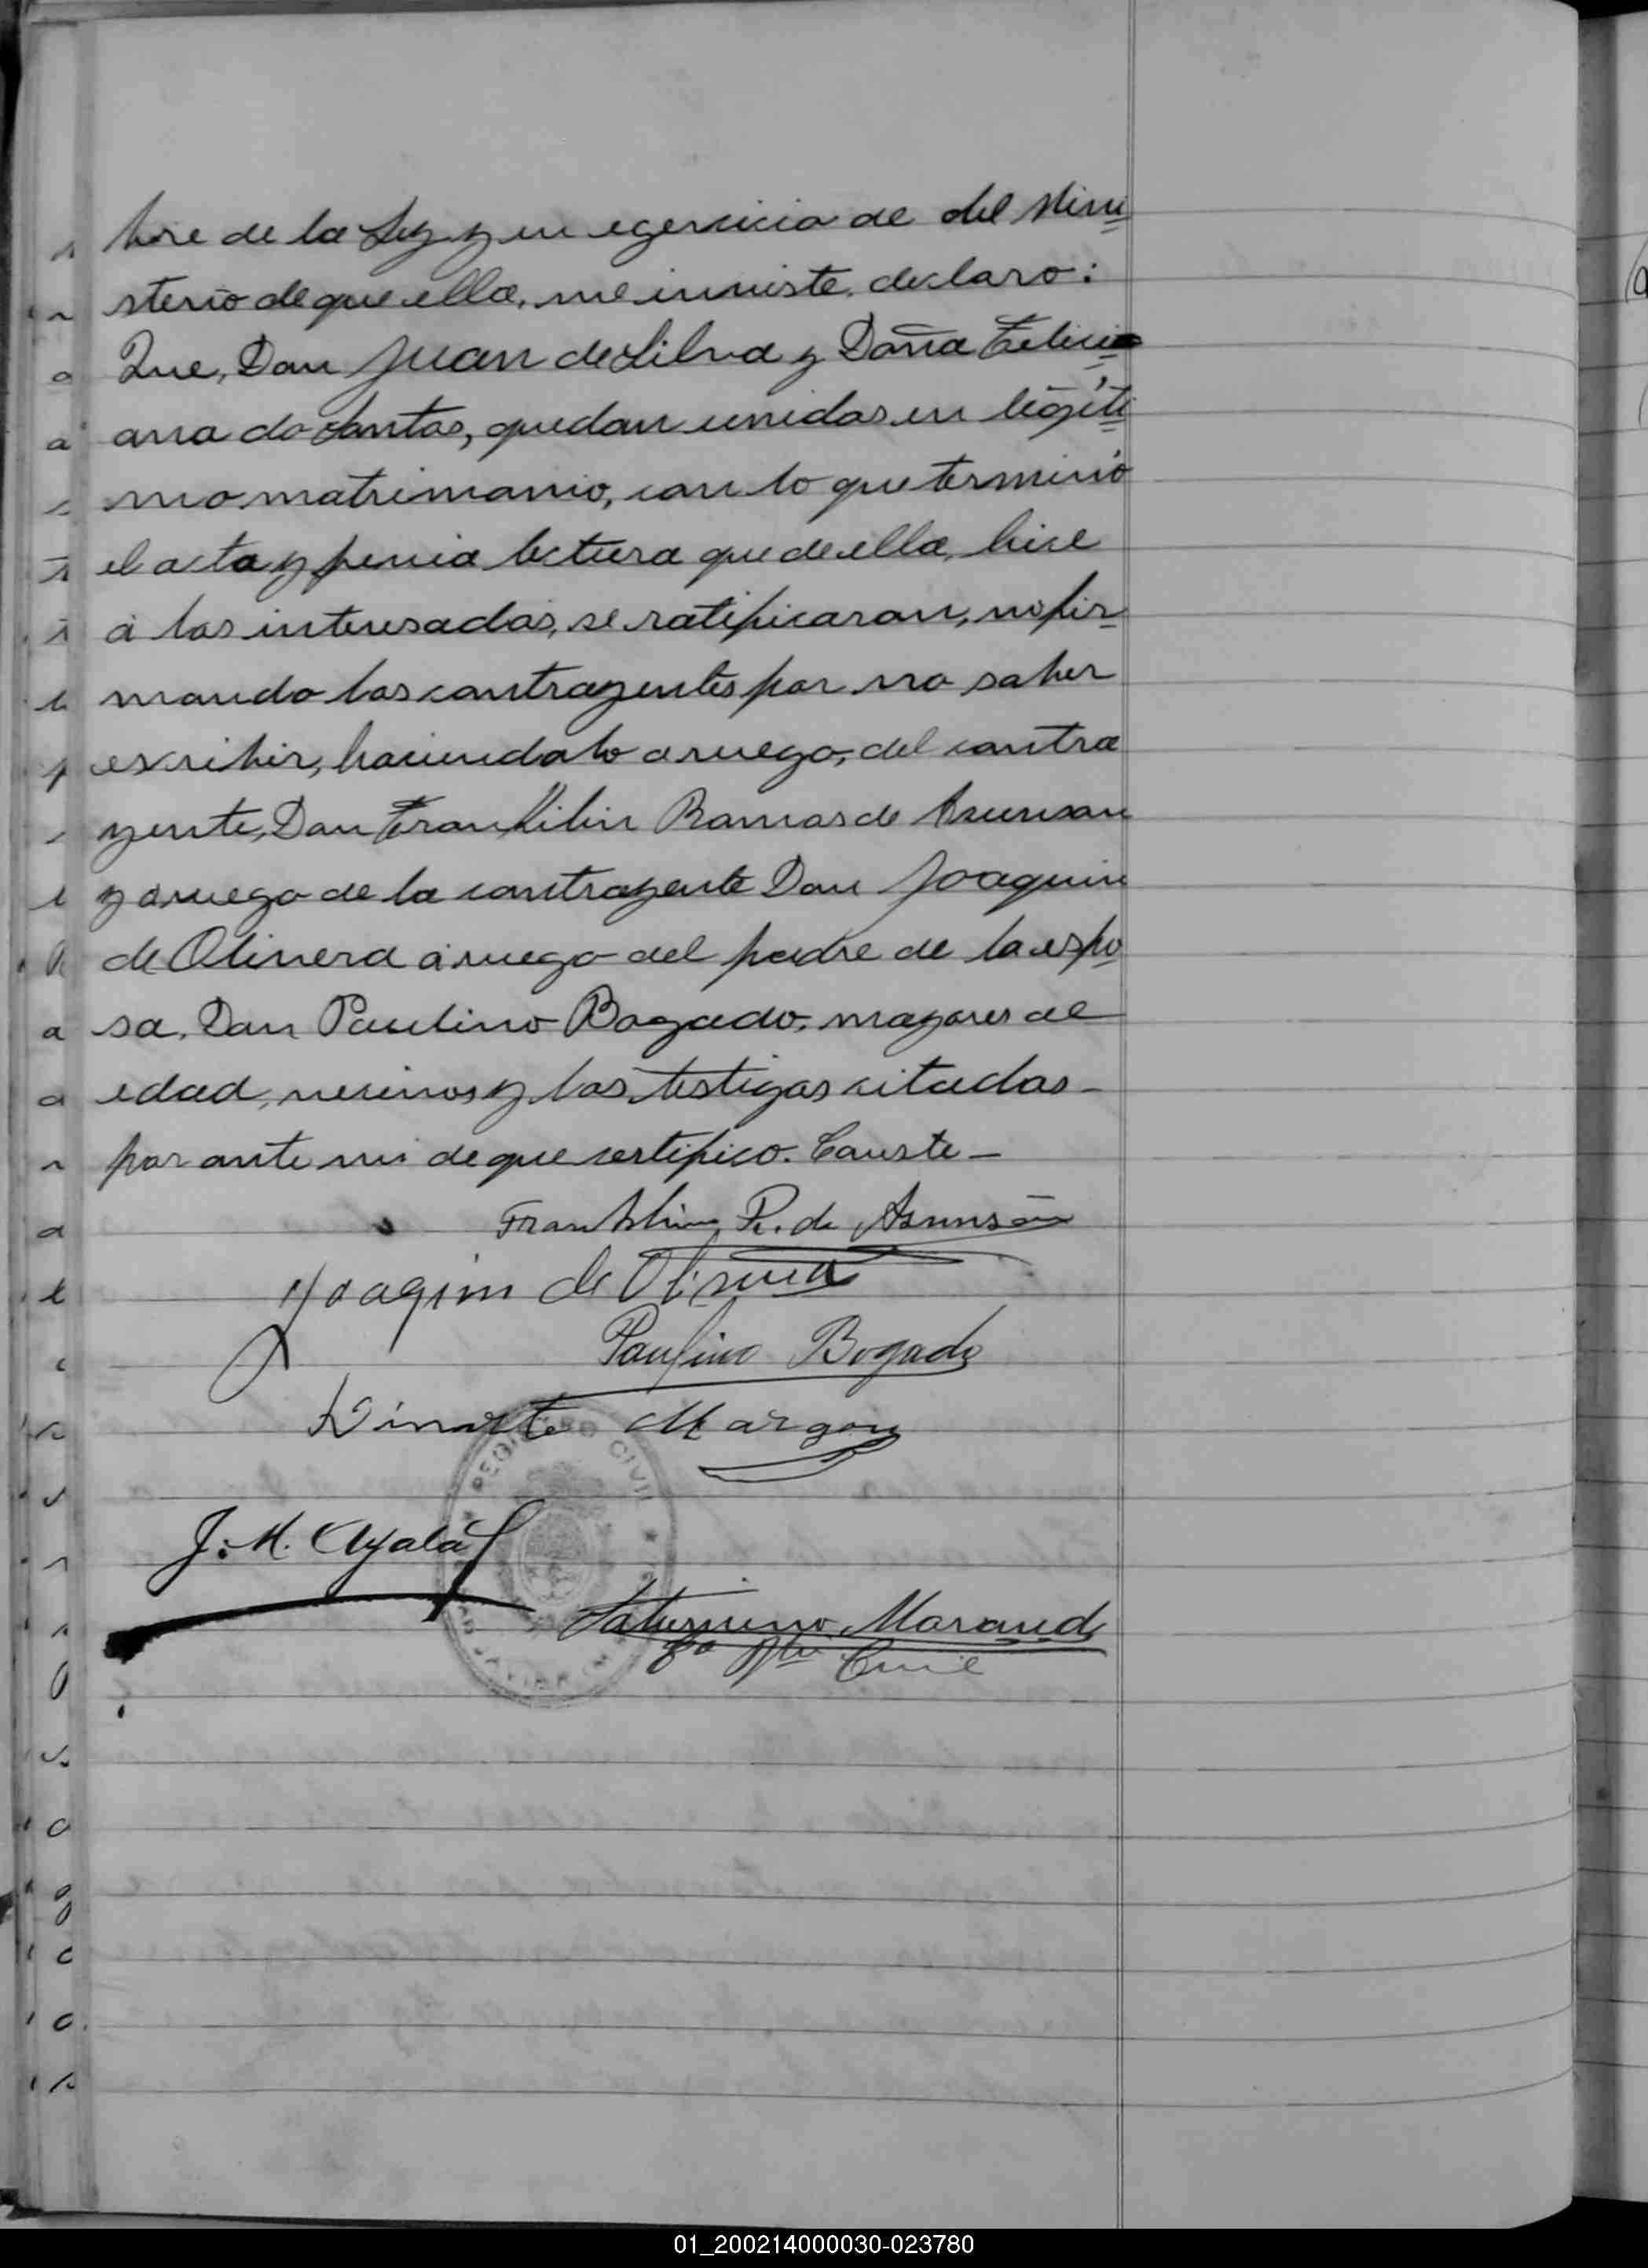 bre de la Ley y en egercicio de del Mini
sterio de que ella, me inviste, declaro:
Que, Don Juan de Silva y Doña Felici
ana do Santos, quedan unidos en legíti
mo matrimonio, con lo que terminó
el acta y previa lectura que de ella, hice
á los interesados, se ratificaron, no fir
mando los contrayentes por no saber
escribir, haciendolo a ruego, del contra
yente, Don Franklilin Ramos de Asunsan
y a ruego de la contrayente Don Joaquin
de Olivera á ruego del padre de la espo
sa, Don Paulino Bogado, mayores de
edad, vecinos y los testigos citados -
por ante mi de que certifico. Conste -
Franklin R. de Asunsão
Joaqim de Olivera
Paulino Bogado
Dinarte Margon
REGISTRO CIVIL
J. M. Ayala
Saturnino
Civil
01_200214000030-023780